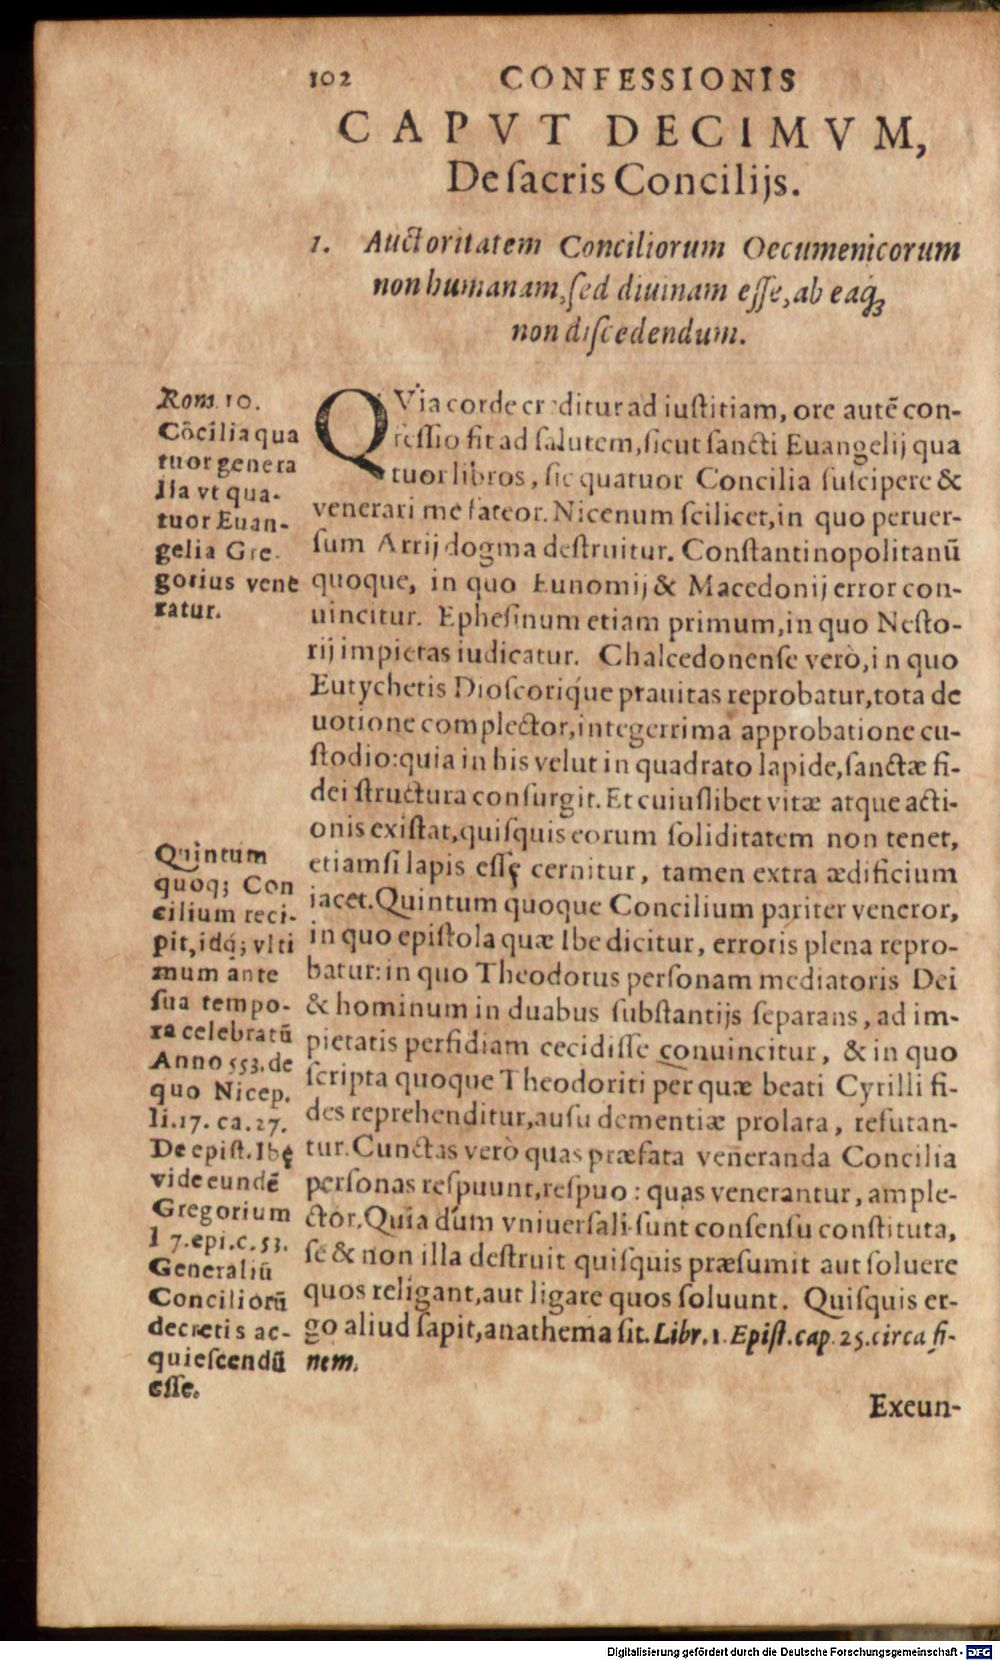 102 CONFESSIONIS
CAPVT DECIMVM,
De ſacris Concilijs.
1. Auctoritatem Conciliorum Oecumenicorum
non humanam, ſed diuinam eſſe, ab eaq́ꝫ
non diſcedendum.
Rom. 10.
Cõcilia qua
tuor genera
lia vt qua-
tuor Euan-
gelia Gre-
gorius vene
ratur.
QVia corde creditur ad iuſtitiam, ore autẽ con-
feſſio fit ad ſalutem, ſicut ſancti Euangelij qua
tuor libros, ſic quatuor Concilia ſuſcipere &
venerari me fateor. Nicenum ſcilicet, in quo peruer-
ſum Arrij dogma deſtruitur. Conſtantinopolitanũ
quoque, in quo Eunomij & Macedonij error con-
uincitur. Epheſinum etiam primum, in quo Neſto-
rij impietas iudicatur. Chalcedonenſe verò, in quo
Eutychetis Dioſcoriq́ue prauitas reprobatur, tota de
uotione complector, integerrima approbatione cu-
ſtodio: quia in his velut in quadrato lapide, ſanctæ fi-
dei ſtructura conſurgit. Et cuiuſlibet vitæ atque acti-
onis exiſtat, quiſquis eorum ſoliditatem non tenet,
etiamſi lapis eſſę cernitur, tamen extra ædificium
iacet. Quintum quoque Concilium pariter veneror,
in quo epiſtola quæ Ibe dicitur, erroris plena repro-
batur: in quo Theodorus perſonam mediatoris Dei
& hominum in duabus ſubſtantijs ſeparans, ad im-
pietatis perfidiam cecidiſſe conuincitur, & in quo
ſcripta quoque Theodoriti per quæ beati Cyrilli fi-
des reprehenditur, auſu dementiæ prolata, refutan-
tur. Cunctas verò quas præfata veneranda Concilia
perſonas reſpuunt, reſpuo: quas venerantur, ample-
ctor. Quia dum vniuerſali ſunt conſenſu conſtituta,
ſe & non illa deſtruit quiſquis præſumit aut ſoluere
quos religant, aut ligare quos ſoluunt. Quiſquis er-
go aliud ſapit, anathema ſit. Libr. 1. Epiſt. cap. 25. circa fi-
nem.
Quintum
quoqꝫ Con
cilium reci-
pit, idq́ꝫ vlti
mum ante
ſua tempo-
ra celebratũ
Anno 553. de
quo Nicep.
li. 17. ca. 27.
De epiſt. Ibę
vide eundẽ
Gregorium
l 7. epi. c. 53.
Generaliũ
Conciliorũ
decretis ac-
quieſcendũ
eſſe.
Exeun-
Digitalisierung gefördert durch die Deutsche Forschungsgemeinschaft - DFG